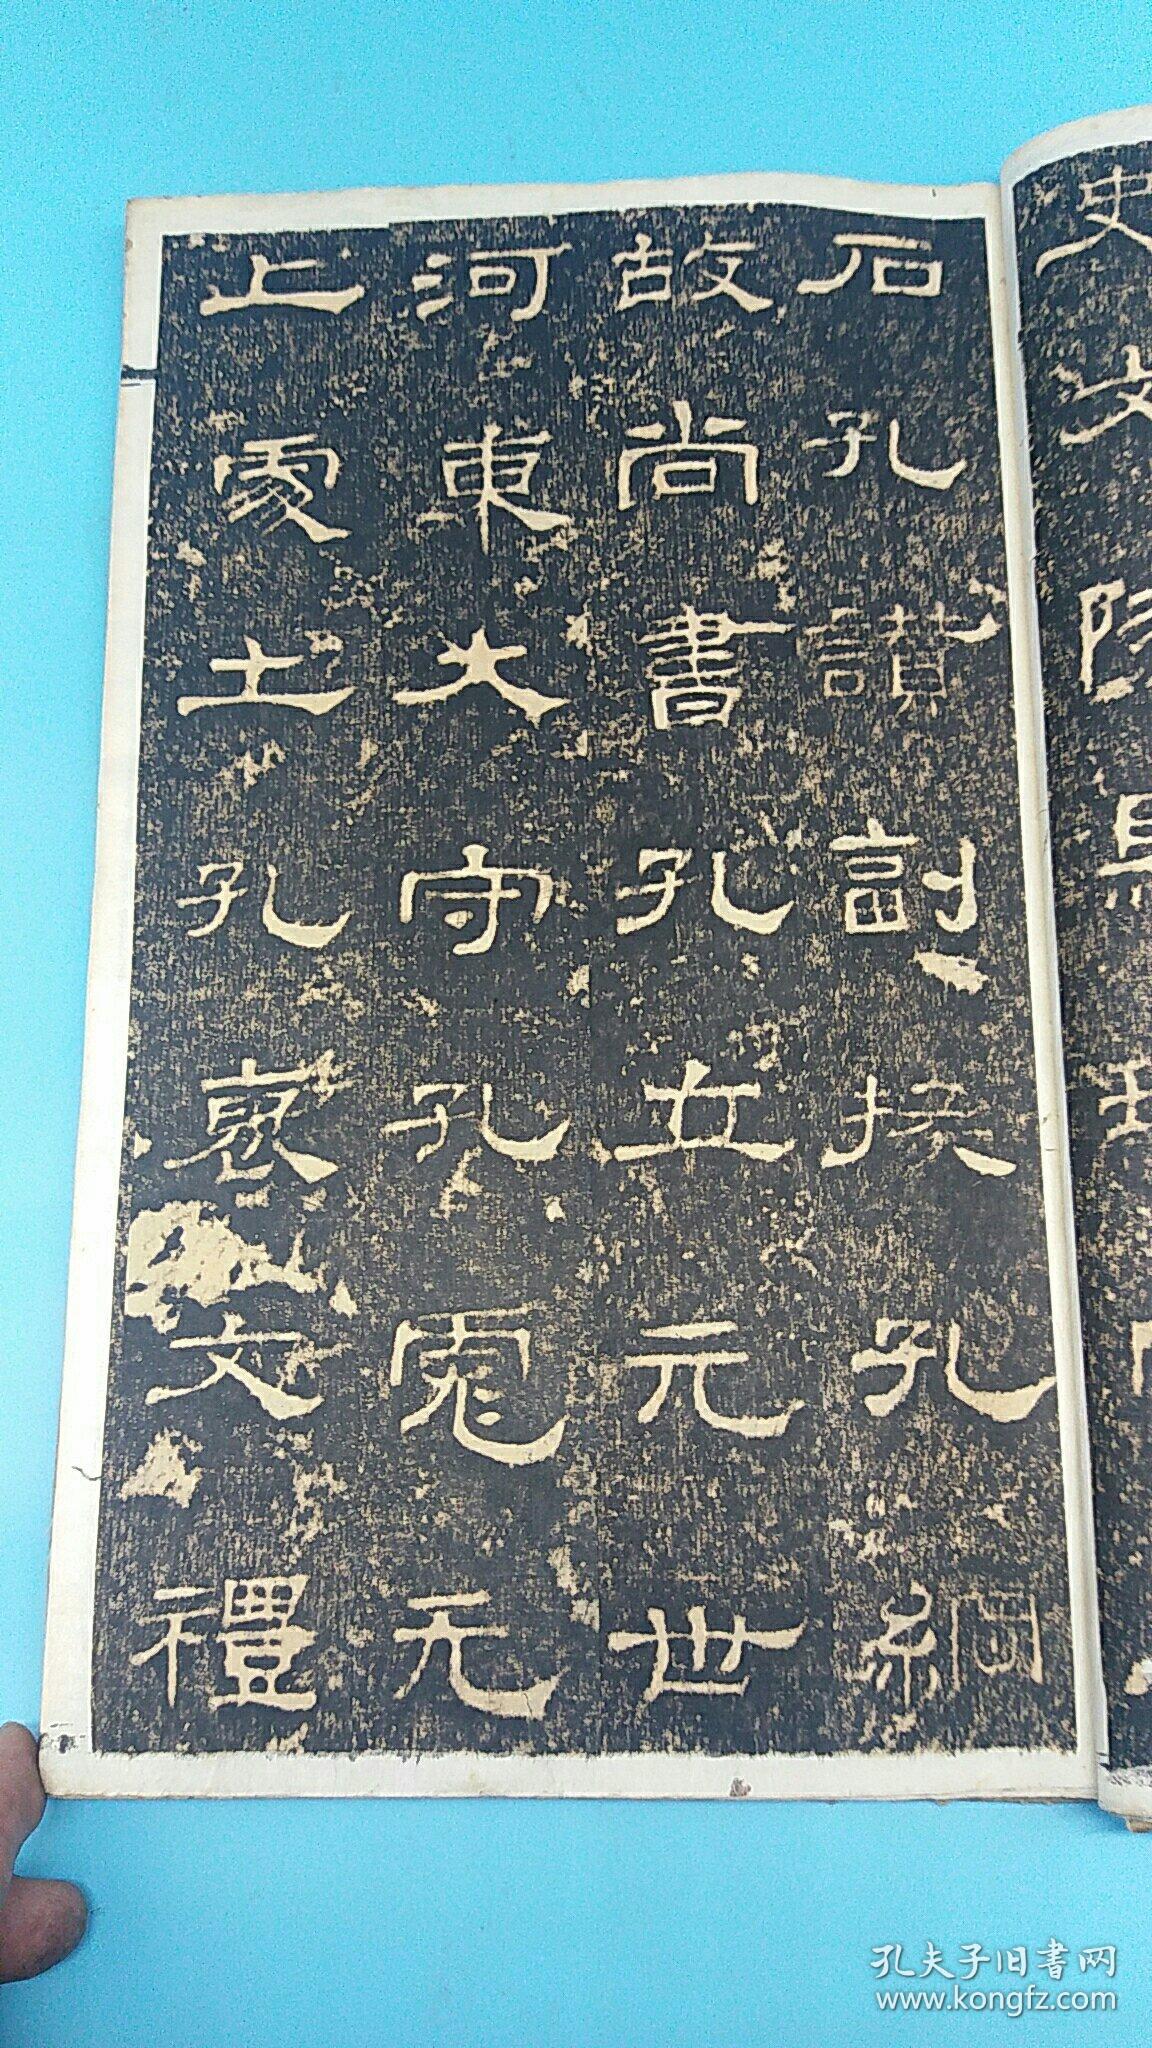 史文
石孔讃副掾孔綱
故尚書孔立元世
河東大守孔彪元
上處土孔褒文禮
孔夫子旧書网
www.kongfz.com